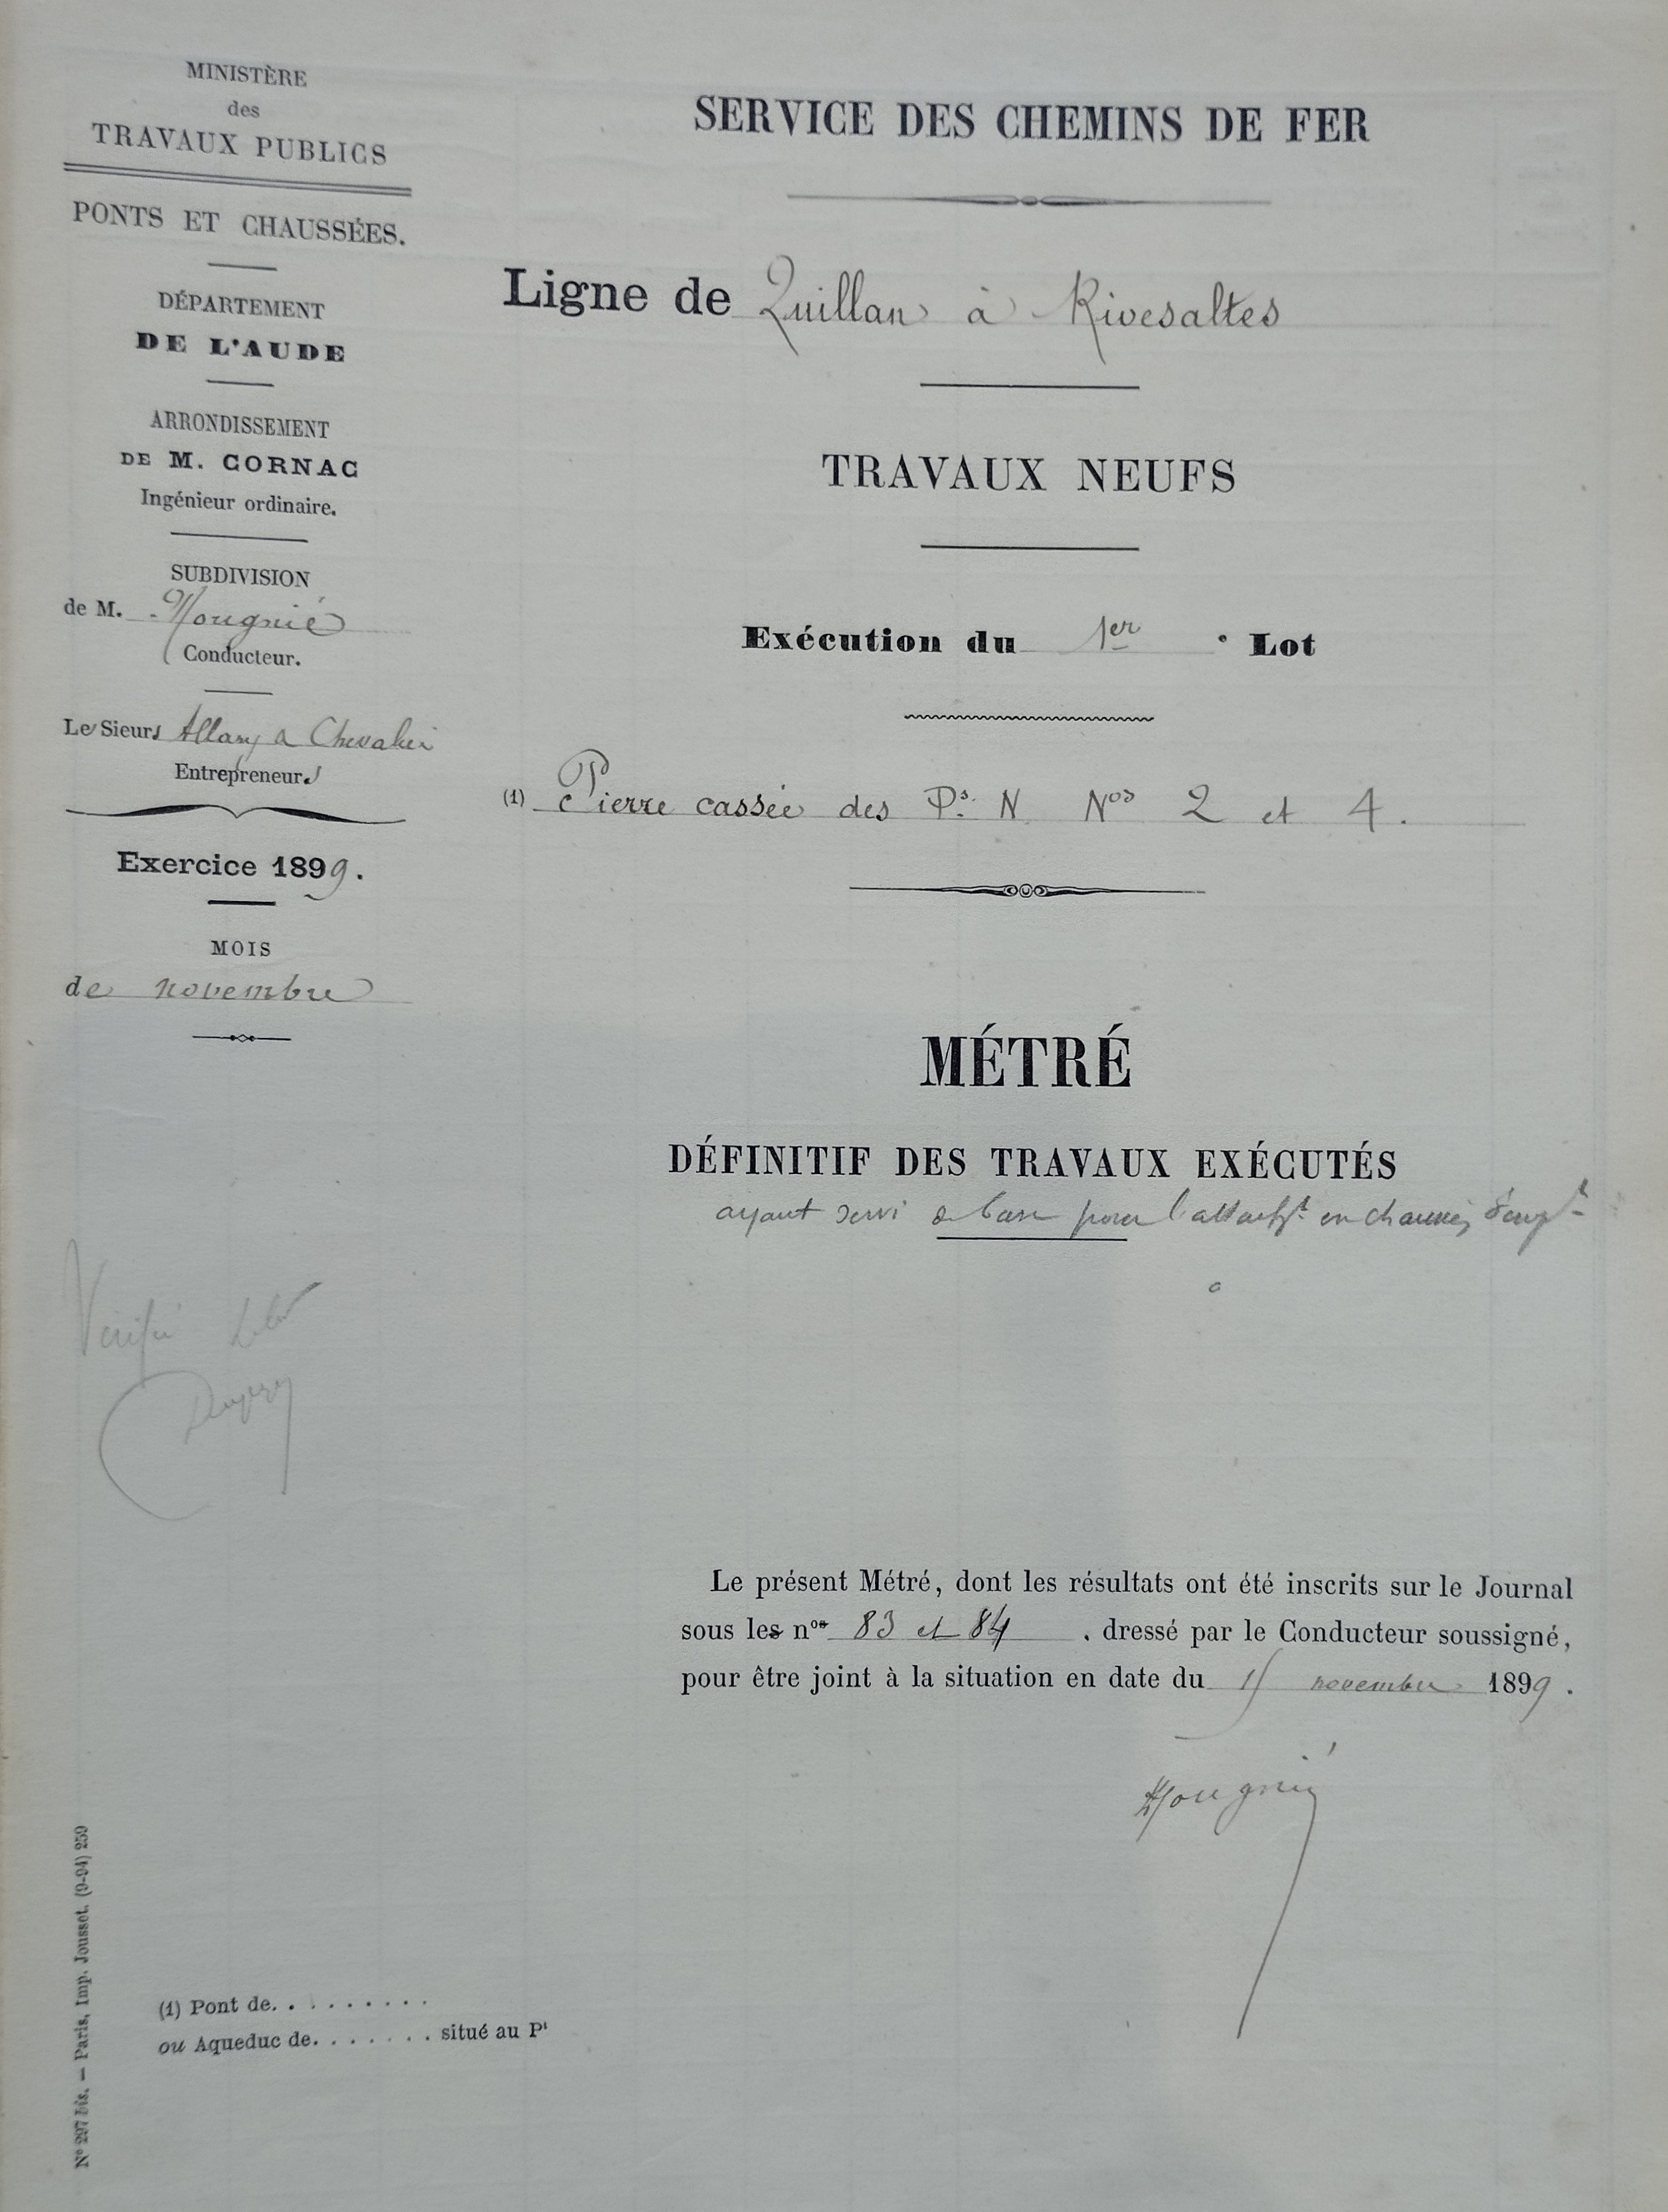 MINISTÈRE
des
TRAVAUX PUBLICS
PONTS ET CHAUSSÉES.
DÉPARTEMENT
DE L'AUDE
ARRONDISSEMENT
DE M. CORNAC
Ingénieur ordinaire.
SUBDIVISION
de M. Mougnié
Conducteur.
Les Sieurs Allary & Chevalier
Entrepreneurs
Exercice 1899.
MOIS
de novembre
Vérifié
SERVICE DES CHEMINS DE FER
Ligne de Quillan à Rivesaltes
TRAVAUX NEUFS
Exécution du 1er Lot
(1) Pierre cassée des Ps. N Nos 2 et 4.
MÉTRÉ
DÉFINITIF DES TRAVAUX EXÉCUTÉS
ayant servi de base pour
Le présent Métré, dont les résultats ont été inscrits sur le Journal
sous les nos 83 et 84 , dressé par le Conducteur soussigné,
pour être joint à la situation en date du 15 novembre 1899.
Mougnié
(1) Pont de. . . . . . . . .
ou Aqueduc de. . . . . . . situé au Pt
N° 297 bis. — Paris, Imp. Jousset. (9-94) 259